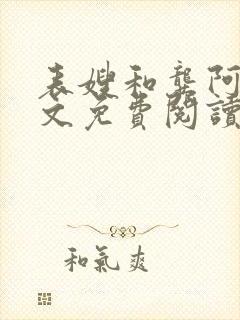 表嫂和龔阿
文免費閱讀
和氣爽